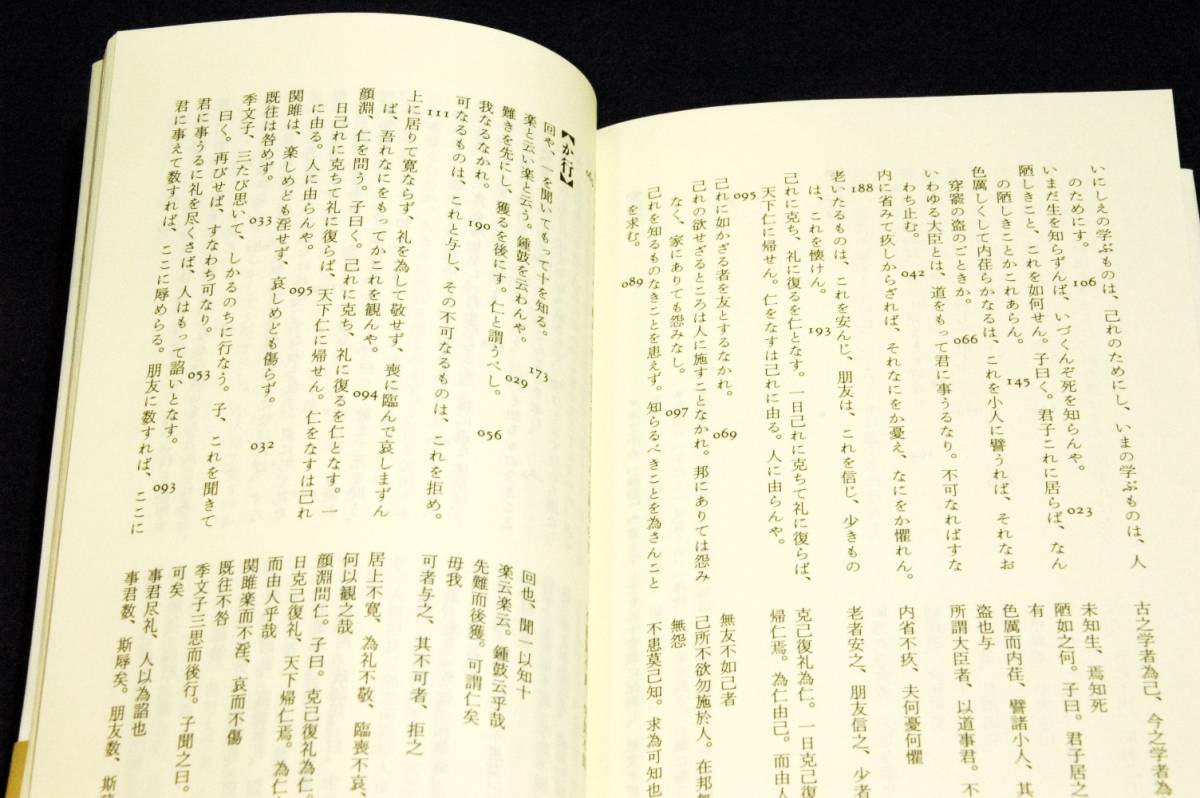 いにしえの学ぶものは、己れのためにし、いまの学ぶものは、人
のためにす。 106
いまだ生を知らずんば、いづくんぞ死を知らんや。 023
陋しきこと、これを如何せん。子曰く。君子これに居らば、なん
の陋しきことかこれあらん。 145
色厲しくして内荏らかなるは、これを小人に譬うれば、それなお
穿窬の盗のごときか。 066
いわゆる大臣とは、道をもって君に事うるなり。不可なればすな
わち止む。 042
内に省みて疚しからざれば、それなにをか憂え、なにをか懼れん。
188
老いたるものは、これを安んじ、朋友は、これを信じ、少きもの
は、これを懐けん。 193
己れに克ち、礼に復るを仁となす。一日己れに克ちて礼に復らば、
天下仁に帰せん。仁をなすは己れに由る。人に由らんや。
095
己れに如かざる者を友とするなかれ。 069
己れの欲せざるところは人に施すことなかれ。邦にありては怨み
なく、家にありても怨みなし。 097
己れを知るものなきことを思えず。知らるべきことを為さんこと
を求む。 089
古之学者為己、今之学者為
未知生、焉知死
陋如之何。子曰。君子居之
有
色厲而内荏、譬諸小人、其
盗也与
所謂大臣者、以道事君。不
内省不疚、夫何憂何懼
老者安之、朋友信之、少者
克己復礼為仁。一日克己復
帰仁焉。為仁由己。而由人
無友不如己者
己所不欲勿施於人。在邦無
無怨
不思莫己知。求為可知也
【か行】
回や、一を聞いてもって十を知る。 173
楽と云い楽と云う。鍾鼓を云わんや。 029
難きを先にし、獲るを後にす。仁と謂うべし。 056
我なるなかれ。 190
可なるものは、これと与し、その不可なるものは、これを拒め。
111
上に居りて寛ならず、礼を為して敬せず、喪に臨んで哀しまずん
ば、吾れなにをもってかこれを観んや。 094
顔淵、仁を問う。子曰く。己れに克ち、礼に復るを仁となす。一
日己れに克ちて礼に復らば、天下仁に帰せん。仁をなすは己れ
に由る。人に由らんや。 095
関雎は、楽しめども淫せず、哀しめども傷らず。 032
既往は咎めず。 033
季文子、三たび思いて、しかるのちに行なう。子、これを聞きて
曰く。再びせば、すなわち可なり。 053
君に事うるに礼を尽くさば、人はもって諂いとなす。 093
君に事えて数すれば、ここに辱めらる。朋友に数すれば、ここに
回也、聞一以知十
楽云楽云。鍾鼓云乎哉
先難而後獲。可謂仁矣
毋我
可者与之、其不可者、拒之
居上不寛、為礼不敬、臨喪不哀、
何以観之哉
顔淵問仁。子曰。克己復礼為仁。
日克己復礼、天下帰仁焉。為仁
而由人乎哉
関雎楽而不淫、哀而不傷
既往不咎
季文子三思而後行。子聞之曰。
可矣
事君尽礼、人以為諂也
事君数、斯辱矣。朋友数、斯